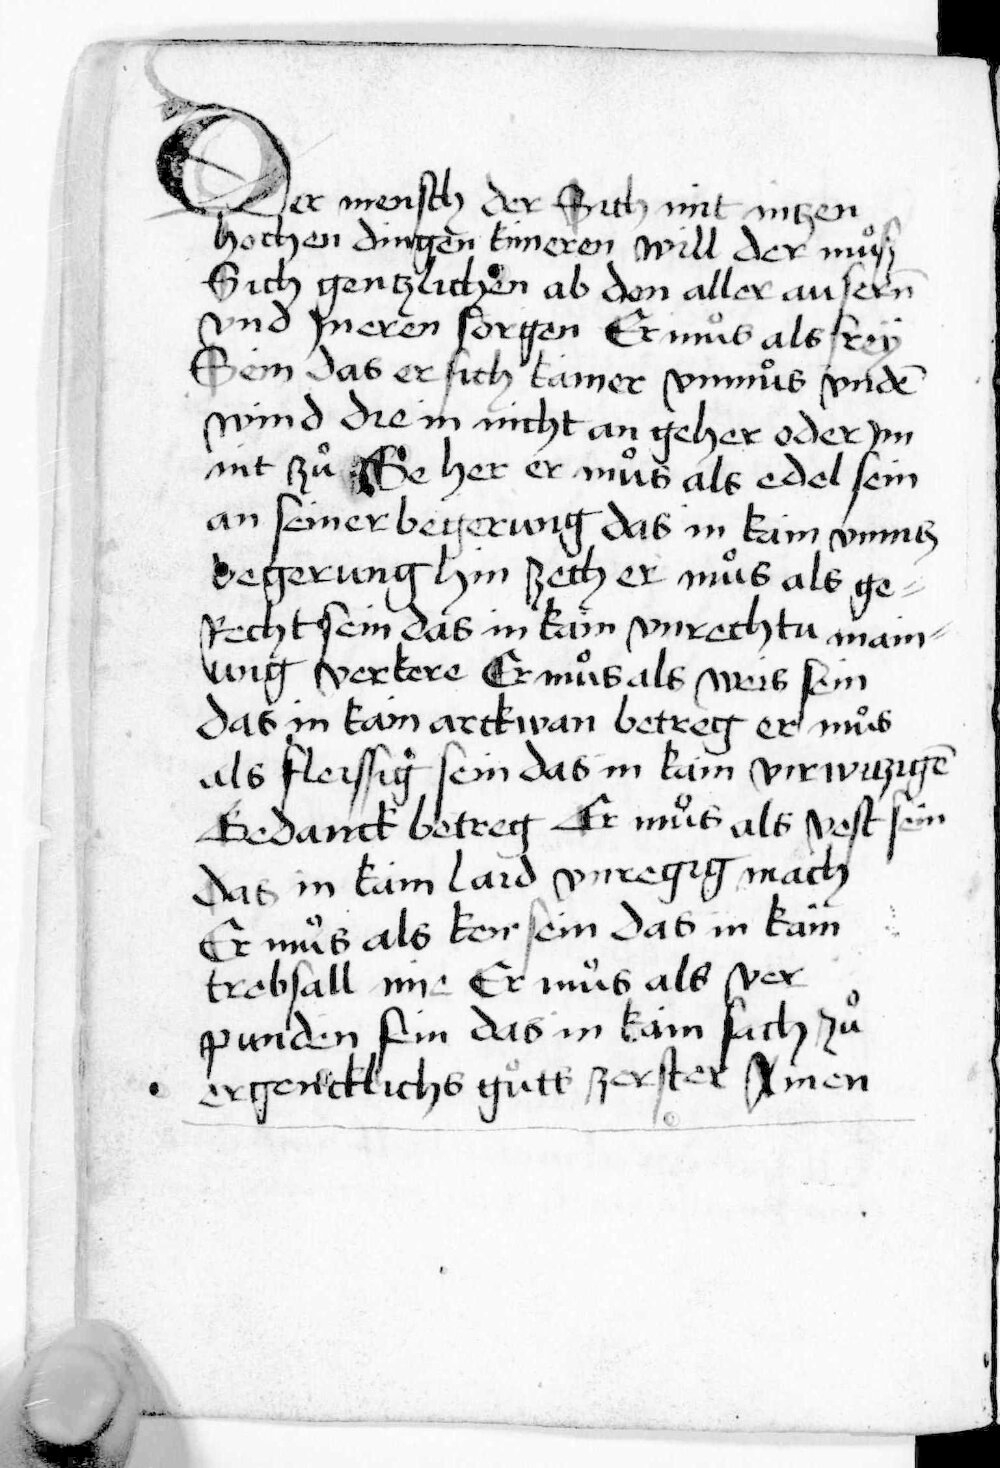 Der mensch der Sich mit nitzen
hochen dingen kimeren will der muͦß
Sich gentzlichen ab den aller ausern̄
vnd Jneren sorgen Er muͦs als freÿ
Sein das er sich kainer vnmuͦs vndē
wind die in nicht an geher oder Jm
nit zuͦ Ge her er muͦs als edel sein
an seiner begerung das in kain vnnitz
begerung hin zech er muͦs als ge-
Recht sein das in kain vnrechtu main-
ung verkere Er muͦs als weis sein
das in kain arckwan betreg er muͦs
als fleissig sein das in kain virwizigē
Gedanck betreg Er muͦs als vest sein
das in kain laid vnregig mach
Er muͦs als ken sein das in kain
trebsall mie Er muͦs als ver
punden sein das in kain sach zuͦ
ergencklichs guͦts zerster Amen